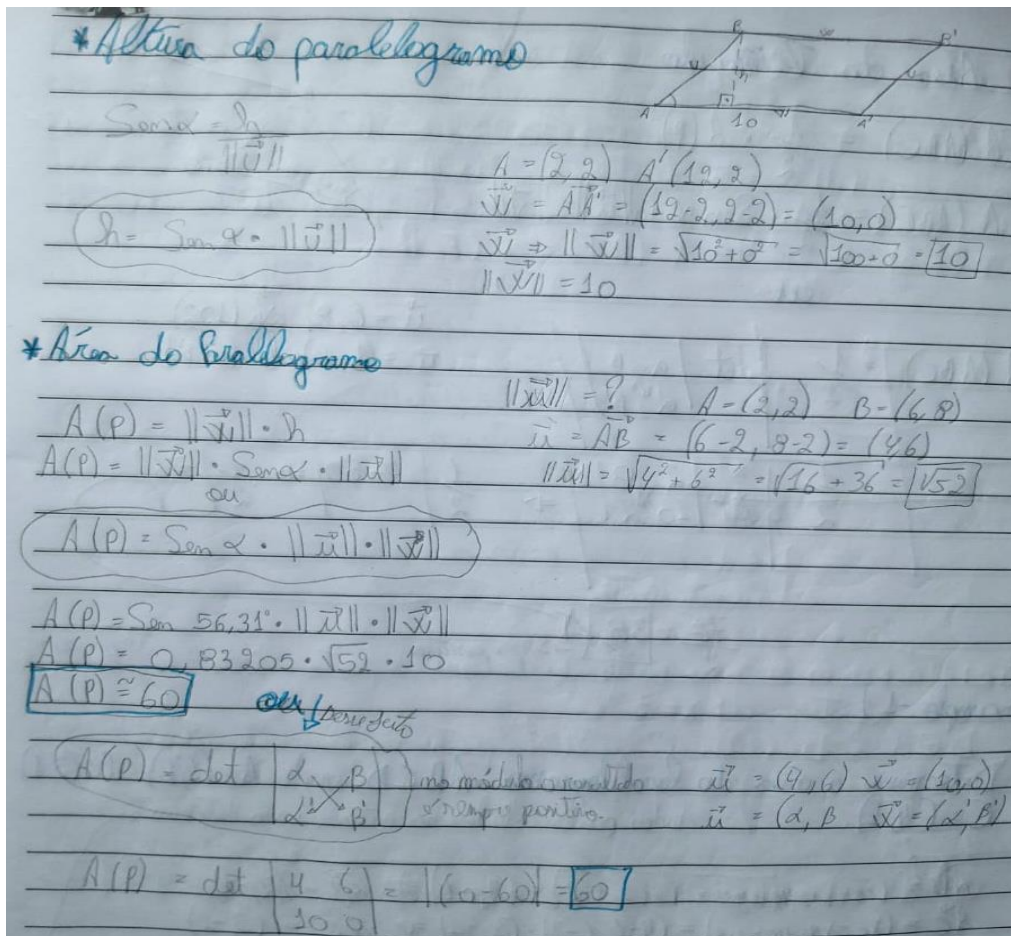 * Altura do paralelogramo
B w B'
u h u
A 10 w A'
Sen α = h / ||u⃗||
h = Sen α · ||u⃗||
A = (2,2) A' (12,2)
w⃗ = AA'⃗ = (12-2, 2-2) = (10,0)
w⃗ ⇒ ||w⃗|| = √10² + 0² = √100+0 = 10
||w⃗|| = 10
* Área do Paralelogramo
A(P) = ||w⃗|| · h
A(P) = ||w⃗|| · Sen α · ||u⃗||
ou
A(P) = Sen α · ||u⃗|| · ||w⃗||
||u⃗|| = ? A = (2,2) B = (6,8)
u⃗ = AB⃗ = (6-2, 8-2) = (4,6)
||u⃗|| = √4² + 6² = √16 + 36 = √52
A(P) = Sen 56,31° · ||u⃗|| · ||w⃗||
A(P) = 0,83205 · √52 · 10
A(P) ≅ 60
ou
A(P) = det | α B |
| α' B' |
no módulo o resultado
é sempre positivo.
u⃗ = (4,6) w⃗ = (10,0)
u⃗ = (α, B w⃗ = (α', B')
A(P) = det | 4 6 | = |(0-60)| = 60
| 10 0 |